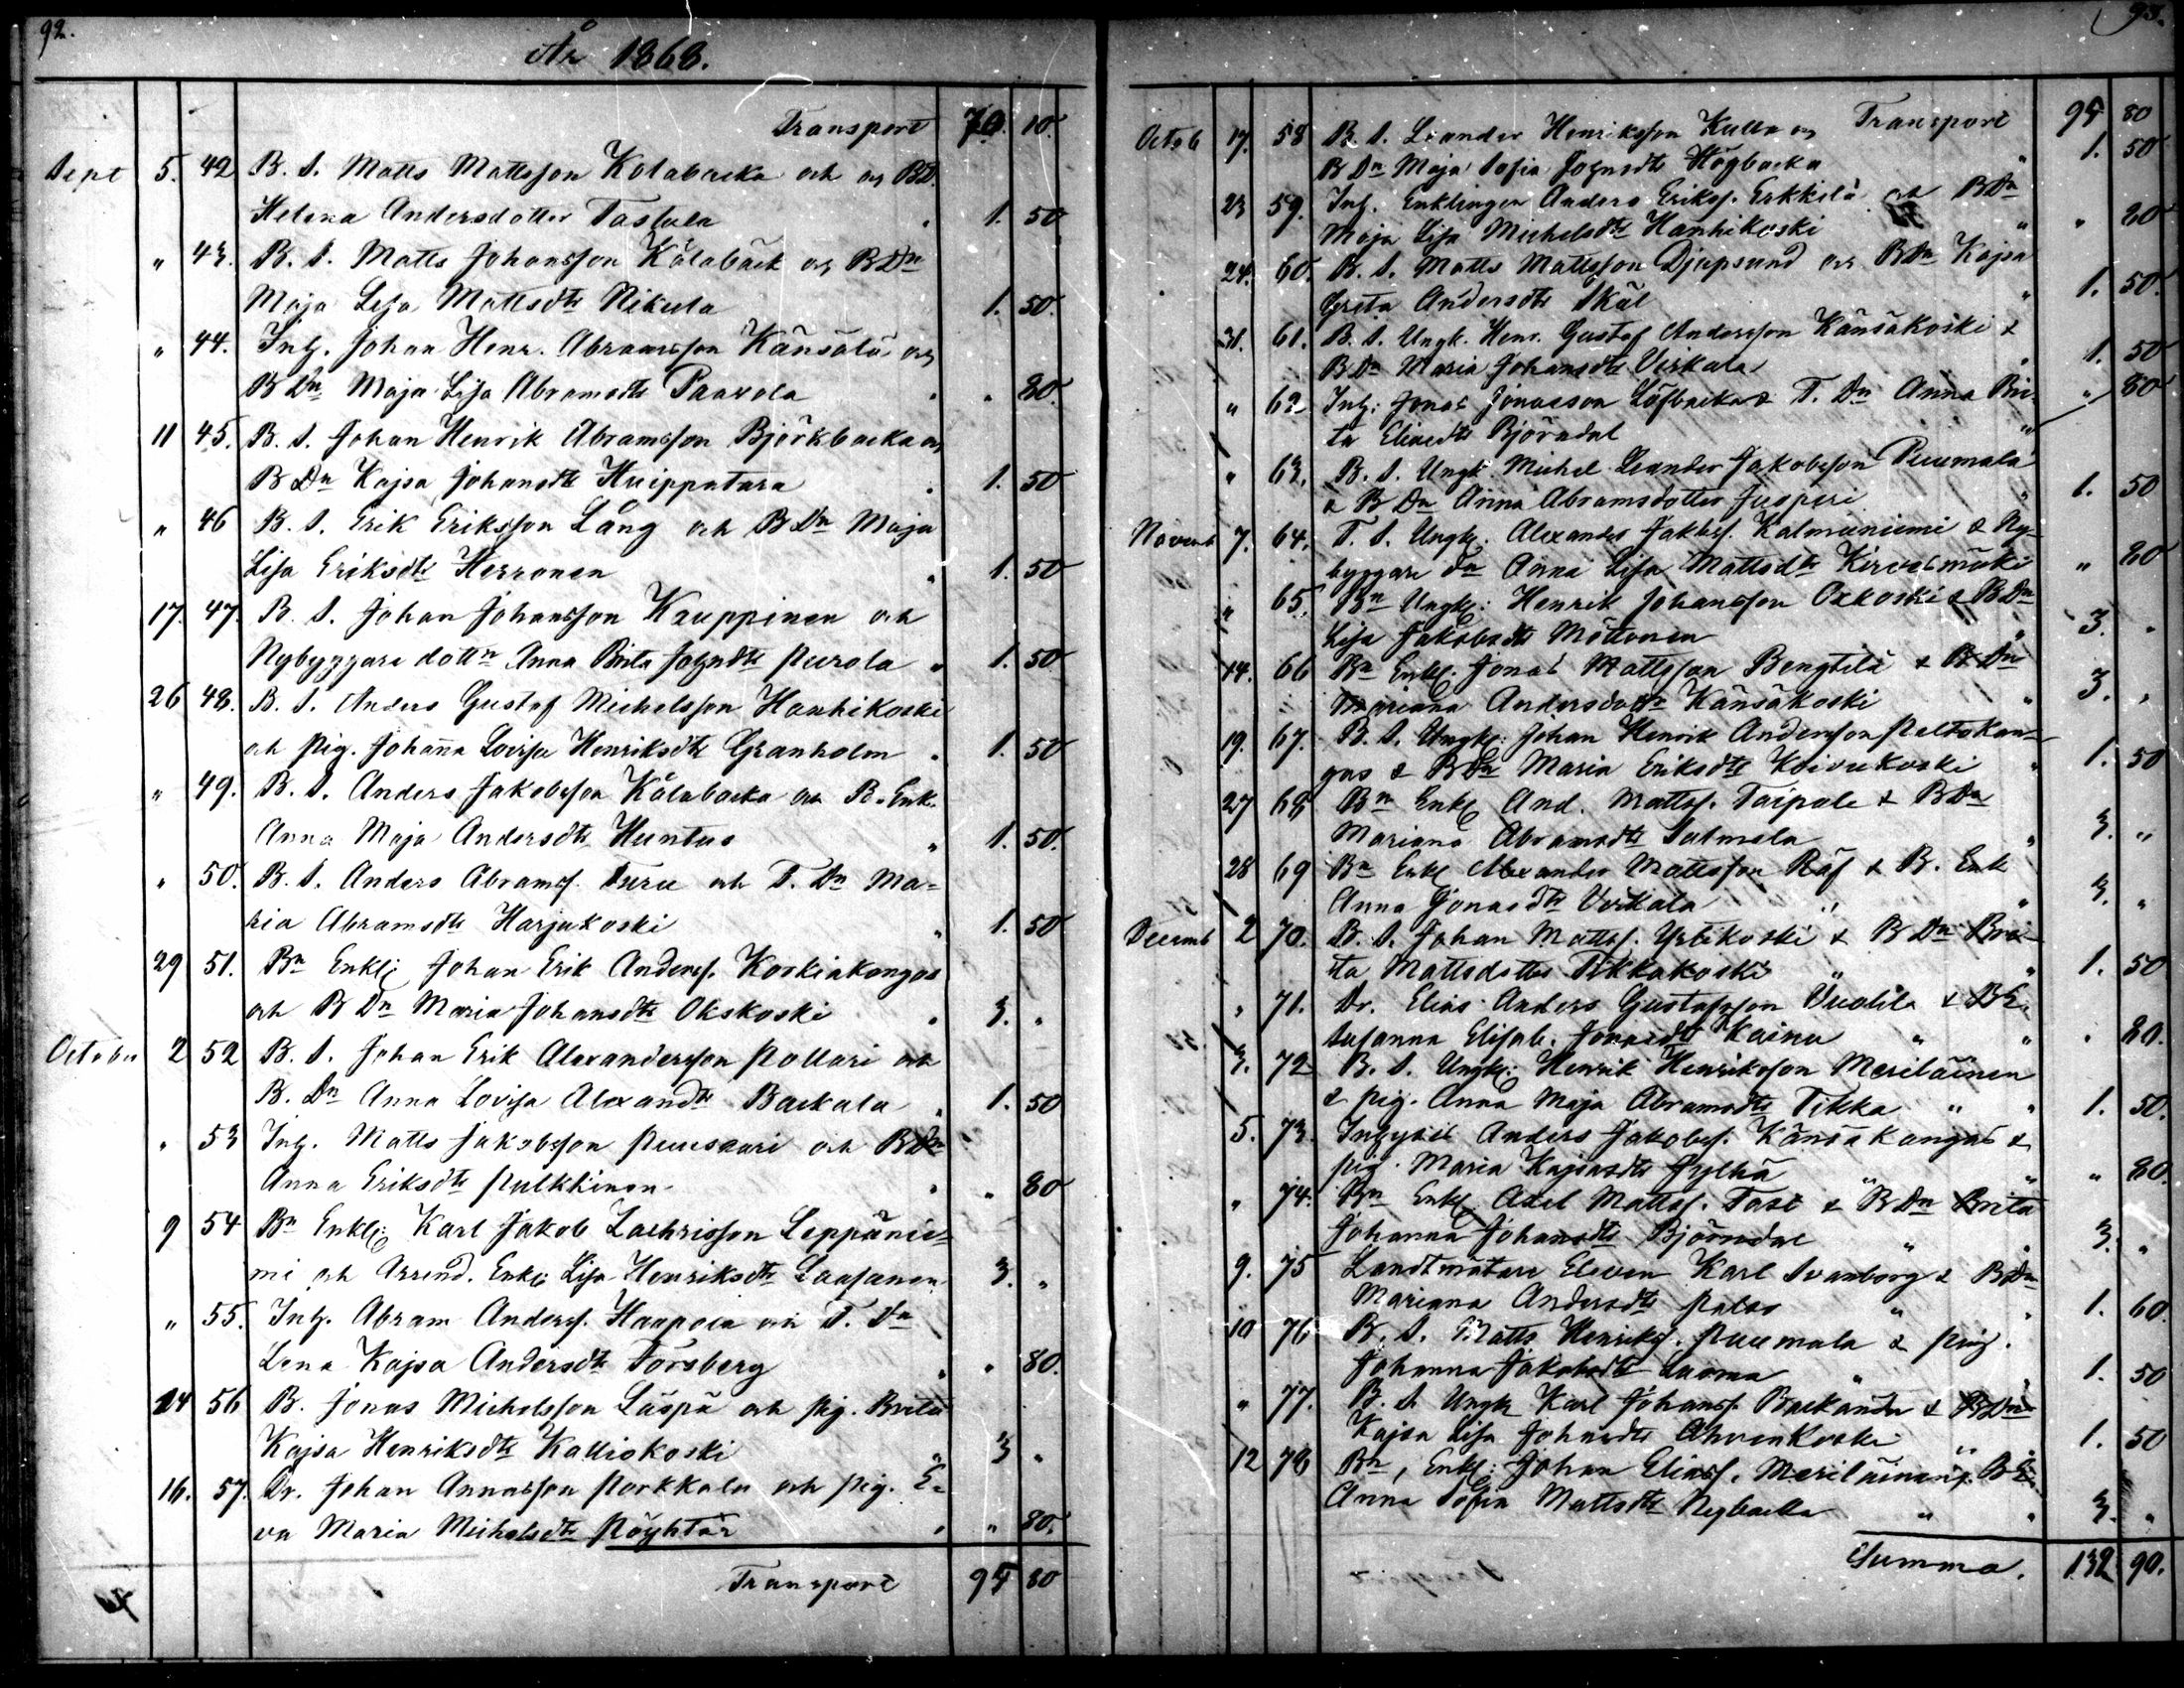 92.
År 1868.
Transport 70. 10.
Sept 5. 42 B. S. Matts Mattsson Kolabacka och BD.
Helena Andersdotter Tastula " 1. 50
" 43. B. S. Matts Johansson Kålabäck o. BDn
Maja Lisa Mattsdtr Nikula 1. 50.
" 44. Inh. Johan Henr. Abramsson Känsälä o.
B Dn Maja Lisa Abramsdtr Paavola " " 80.
11 45. B. S. Johan Henrik Abramsson Björkbacka o.
B Dn Kajsa Johansdtr Huippatara " 1. 50
" 46 B. S. Erik Eriksson Lång och B Dn Maja
Lisa Eriksdtr Herronen " 1. 50
17. 47. B. S. Johan Johansson Kauppinen och
Nybyggare dottn Anna Brita Johndtr Purola " 1. 50
26 48. B. S. Anders Gustaf Michelsson Hanhikoski
och pig. Johanna Lovisa Henriksdtr Granholm " 1. 50
" 49. B. S. Anders Jakobsson Kålabacka och B. Enk.
Anna Maja Andersdtr Huntus " 1. 50.
" 50. B. S. Anders Abramss. Turu och T. Dn Ma=
ria Abramsdtr Harjukoski " 1. 50
29 51. Bn Enkl: Johan Erik Anderss. Korkiakangas
och B Dn Maria Johansdtr Okskoski " 3. "
October 2 52 B. S. Johan Erik Alexandersson Pollari och
B. Dn Anna Lovisa Alexandtr Backala " 1. 50
" 53 Inh. Matts Jakobsson Puusaari och B Dn
Anna Eriksdtr Pulkkinen " " 80
9 54 Bn Enkl: Karl Jakob Zachrisson Leppänie=
mi och Arrend. Enk: Lisa Henriksdtr Laasanen 3. "
" 55. Inh. Abram Anderss. Haapoia och T. Dn
Lena Kajsa Andersdtr Forsberg " " 80.
14 56 B. Jonas Michelsson Läspä och pig. Brita
Kajsa Henriksdtr Kalliokoski " 3 "
16. 57. Dr. Johan Annasson Porkkala och pig. E=
va Maria Michelsdtr Pöyhtär " " 80.
Transport 95 80
93.
Octob 17. 58 B. S. Leander Henriksson Kulla o. Transport 95 80
B Dn Maja Sofia Johnsdtr Högbacka " 1. 50
23 59. Inh. Enklingen Anders Erikss. Erkkilä och B Dn
Maja Lisa Michelsdtr Hanhikoski " " 80
24. 60. B. S. Matts Mattsson Djupsund och B Dn Kajsa
Greta Andersdtr Skäl " 1. 50.
31. 61. B. S. Ungk. Henr. Gustaf Andersson Känsäkoski &
B Dn Maria Johansdtr Virkala " 1. 50
" 62 Inh: Jonas Jonasson Löfbacka & T. Dn Anna Bri-
ta Eliasdtr Björndal " " 80
" 63. B. S. Ungk Michel Leander Jakobsson Puumala
& B Dn Anna Abramsdotter Jusperi " 1. 50
Novemb 7. 64. T. S. Ungk. Alexander Jakobss. Kalmuniemi & Ny-
byggare dn Anna Lisa Mattsdtr Kirvesmäki " 80
" 65. Bn Ungk: Henrik Johansson Oxkoski & B Dn
Lisa Jakobsdtr Möttönen " 3. "
14. 66 Bn Enkl. Jonas Mattsson Bengtilä & B Dn
Mariana Andersdotr Känsäkoski " 3. "
19. 67. B. S. Ungk: Johan Henrik Andersson Peltokan-
gas & B Dn Maria Eriksdtr Koivukoski " 1. 50
27 68 Bn Enkl And. Mattss. Taipale & B Dn
Mariana Abramsdtr Salmela " 3. "
28 69 Bn Enkl Alexander Mattsson Räf & B. Enk
Anna Jonasdtr Virkala " " 3. "
Decemb 2 70. B. S. Johan Mattss. Ylikoski & B Dn Bri-
ta Mattsdotter Tikkakoski " " 1. 50
" 71. Dr. Elias Anders Gustafsson Vuolila & B E.
Susanna Elisab. Jonasdtr Kainu " " " 80.
3. 72 B. S. Ungk: Henrik Henriksson Meriläinen
& pig. Anna Maja Abramsdtr Tikka " " 1. 50.
5. 73. Inhysis Anders Jakobss. Känsäkangas &
pig. Maria Kajsasdtr Jylhä " " " 80.
" 74. Bn Enkl. Axel Mattss. Tast & B Dn Brita
Johanna Johansdtr Björndal " " 3. "
9. 75 Landtmätare Eleven Karl Svanborg & B Dn
Mariana Andersdtr Palas " " 1. 60.
10 76 B. S. Matts Henrikss. Puumala & pig.
Johanna Jakobsdtr Luoma " " 1. 50
" 77. B. S. Ungk Karl Johanss. Backända & B Dn
Kajsa Lisa Johnsdtr Ahvenkoski " 1. 50
12 78 Bn, Enkl: Johan Eliass. Meriläinen & B E.
Anna Sofia Mattsdtr Nybacka " " 3. "
Summa. 132 90.